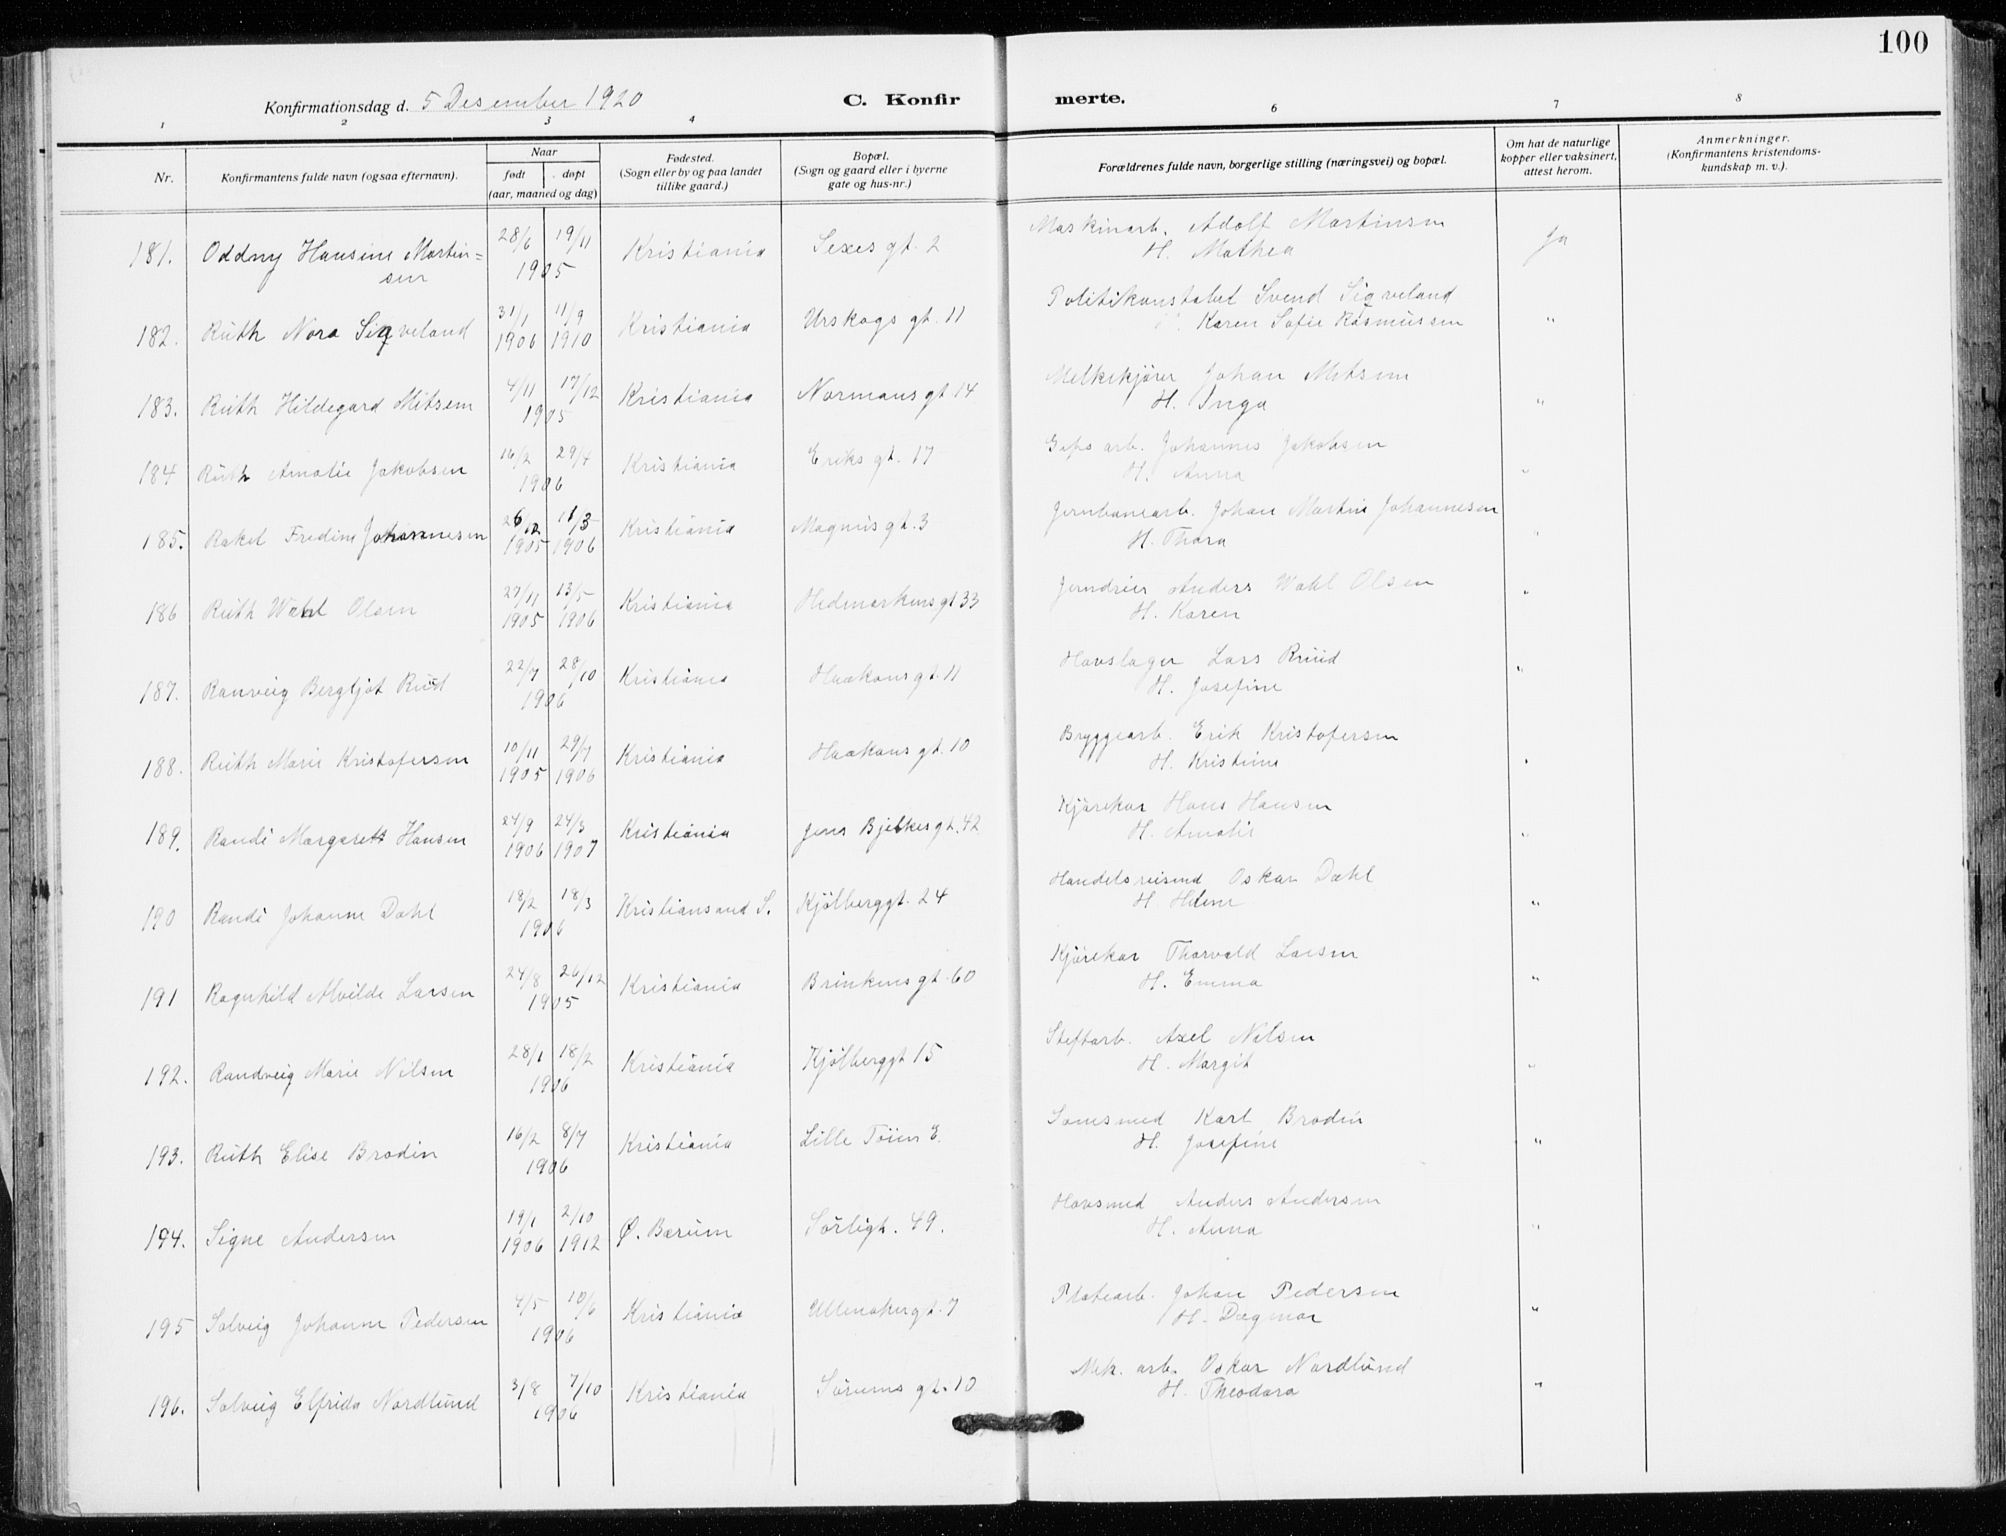 100
Konfirmationsdag d. 5 Desember 1920 C. Konfirmerte.
1 2 3 4 6 7 8
Nr. Konfirmantens fulde navn (ogsaa efternavn). Naar født døpt (aar, maaned og dag) Fødested. (Sogn eller by og paa landet tillike gaard.) Bopæl. (Sogn og gaard eller i byerne gate og hus-nr.) Forældrenes fulde navn, borgerlige stilling (næringsvei) og bopæl. Om hat de naturlige kopper eller vaksinert, attest herom. Anmerkninger. (Konfirmantens kristendomskundskap m. v.).
181. Oddny Hansine Martin= 28/6 19/11 Kristiania Sexes gt. 2 Maskinarb. Adolf Martinsen Ja
sen 1905 H. Mathea
182. Ruth Nora Sigveland 31/1 11/9 Kristiania Urskogs gt. 11 Politikonstabel Svend Sigveland
1906 1910 Karen Sofie Rasmussen "
183. Ruth Hildegard Mitsem 4/11 17/12 Kristiania Normans gt 14 Melkekjører Johan Mitsem
1905 H. Inga "
184 Ruth Amalie Jakobsen 16/2 29/4 Kristiania Eriks gt. 17 Gips arb. Johannes Jakobsen
1906 H. Anna "
185. Rakel Fredine Johannesen 26/12 11/3 Kristiania Magnus gt. 3 Jernbanearb. Johan Martin Johannesen
1905 1906 H. Thora "
186 Ruth Wahl Olsen 27/11 13/5 Kristiania Hedmarkens gt 33 Jerndreier Anders Wahl Olsen
1905 1906 H. Karen "
187. Ranveig Bergljot Rud 22/7 28/10 Kristiania Haakons gt. 11 Hovslager Lars Ruud
1906 H. Josefine "
188. Ruth Marie Kristofersen 10/11 29/7 Kristiania Haakons gt. 10 Bryggearb. Erik Kristofersen
1905 1906 H. Kristine "
189. Randi Margarett Hansen 24/9 24/3 Kristiania Jens Bjelkes gt. 42 Kjørekar Hans Hansen
1906 1907 H. Amalie "
190 Randi Johanne Dahl 18/2 18/3 Kristiansand S. Kjølberggt. 24 Handelsreisend Oskar Dahl
1906 H. Helene "
191 Ragnhild Alvilde Larsen 24/8 26/12 Kristiania Brinkens gt. 60 Kjørekar Thorvald Larsen
1905 H. Emma "
192. Randveig Marie Nilsen 28/1 18/2 Kristiania Kjølberggt 15 Axel Nilsen
1906 H. Margit "
193. Ruth Elise Brodin 16/2 8/7 Kristiania Lille Tøien E. Karl Brodin
1906 H. Josefine "
194. Signe Andersen 19/1 2/10 Ø. Bærum Sørligt. 49. Hovsmed Anders Andersen
1906 1912 H. Anna "
195 Solveig Johanne Pedersen 4/5 10/6 Kristiania Ullensakergt. 7 Platearb. Johan Pedersen
1906 H. Dagmar "
196. Solveig Elfrida Nordlund 3/8 7/10 Kristiania Sørums gt. 10 Mek. arb. Oskar Nordlund
1906 H. Theodora "